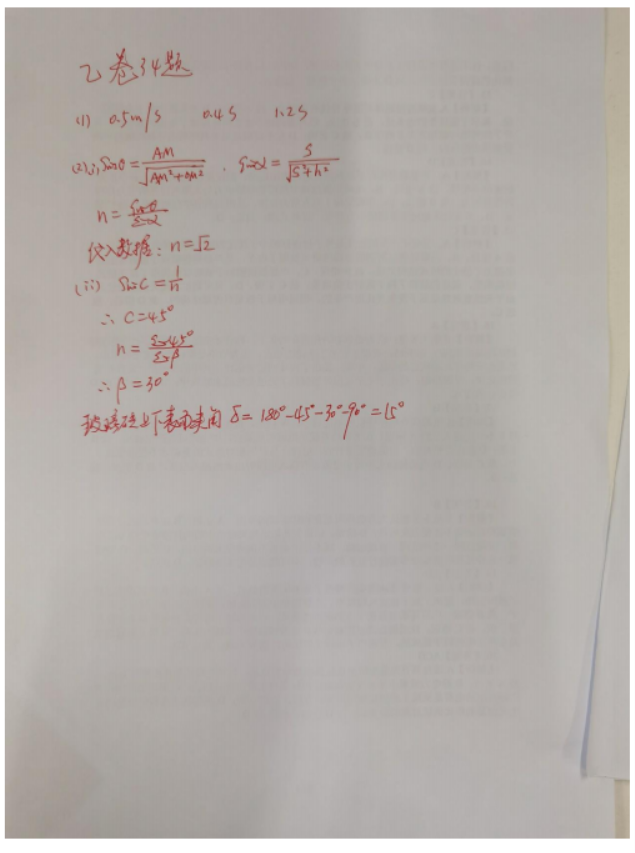 乙卷34题
(1) 0.5m/s 0.4s 1.2s
(2)i, sinθ = AM/√(AM²+OM²) , sinα = s/√(s²+h²)
n = sinθ/sinα
代入数据: n=√2
(ii) sinC = 1/n
∴ C=45°
n = sin45°/sinβ
∴ β=30°
玻璃砖上下表面夹角 δ= 180°-45°-30°-90°=15°